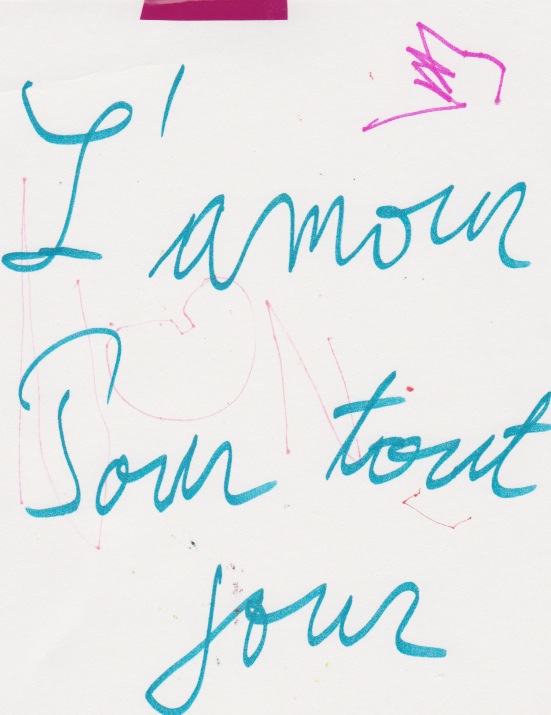 L'amour
Pour tout
jour